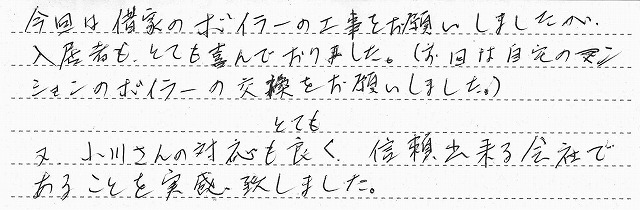 今回は借家のボイラーの工事をお願いしましたが、
入居者も、とても喜んでおりました。(前回は自宅のマン
ションのボイラーの交換をお願いしました。)
とても
又 小川さんの対応も良く、信頼出来る会社で
あることを実感致しました。